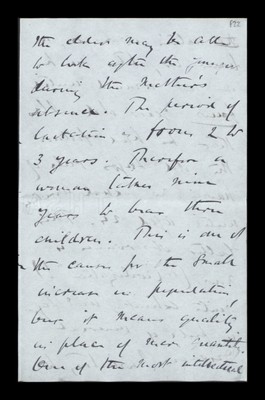 the elders may be able
to look after the younger
during the Mother's
absence. The period of
lactation is from 2 to
3 years. Therefore a
woman takes nine
years to bear three
children. This is one of
the causes for the small
increase in population,
but it means quality
in place of mere quantity.
One of the most intellectual